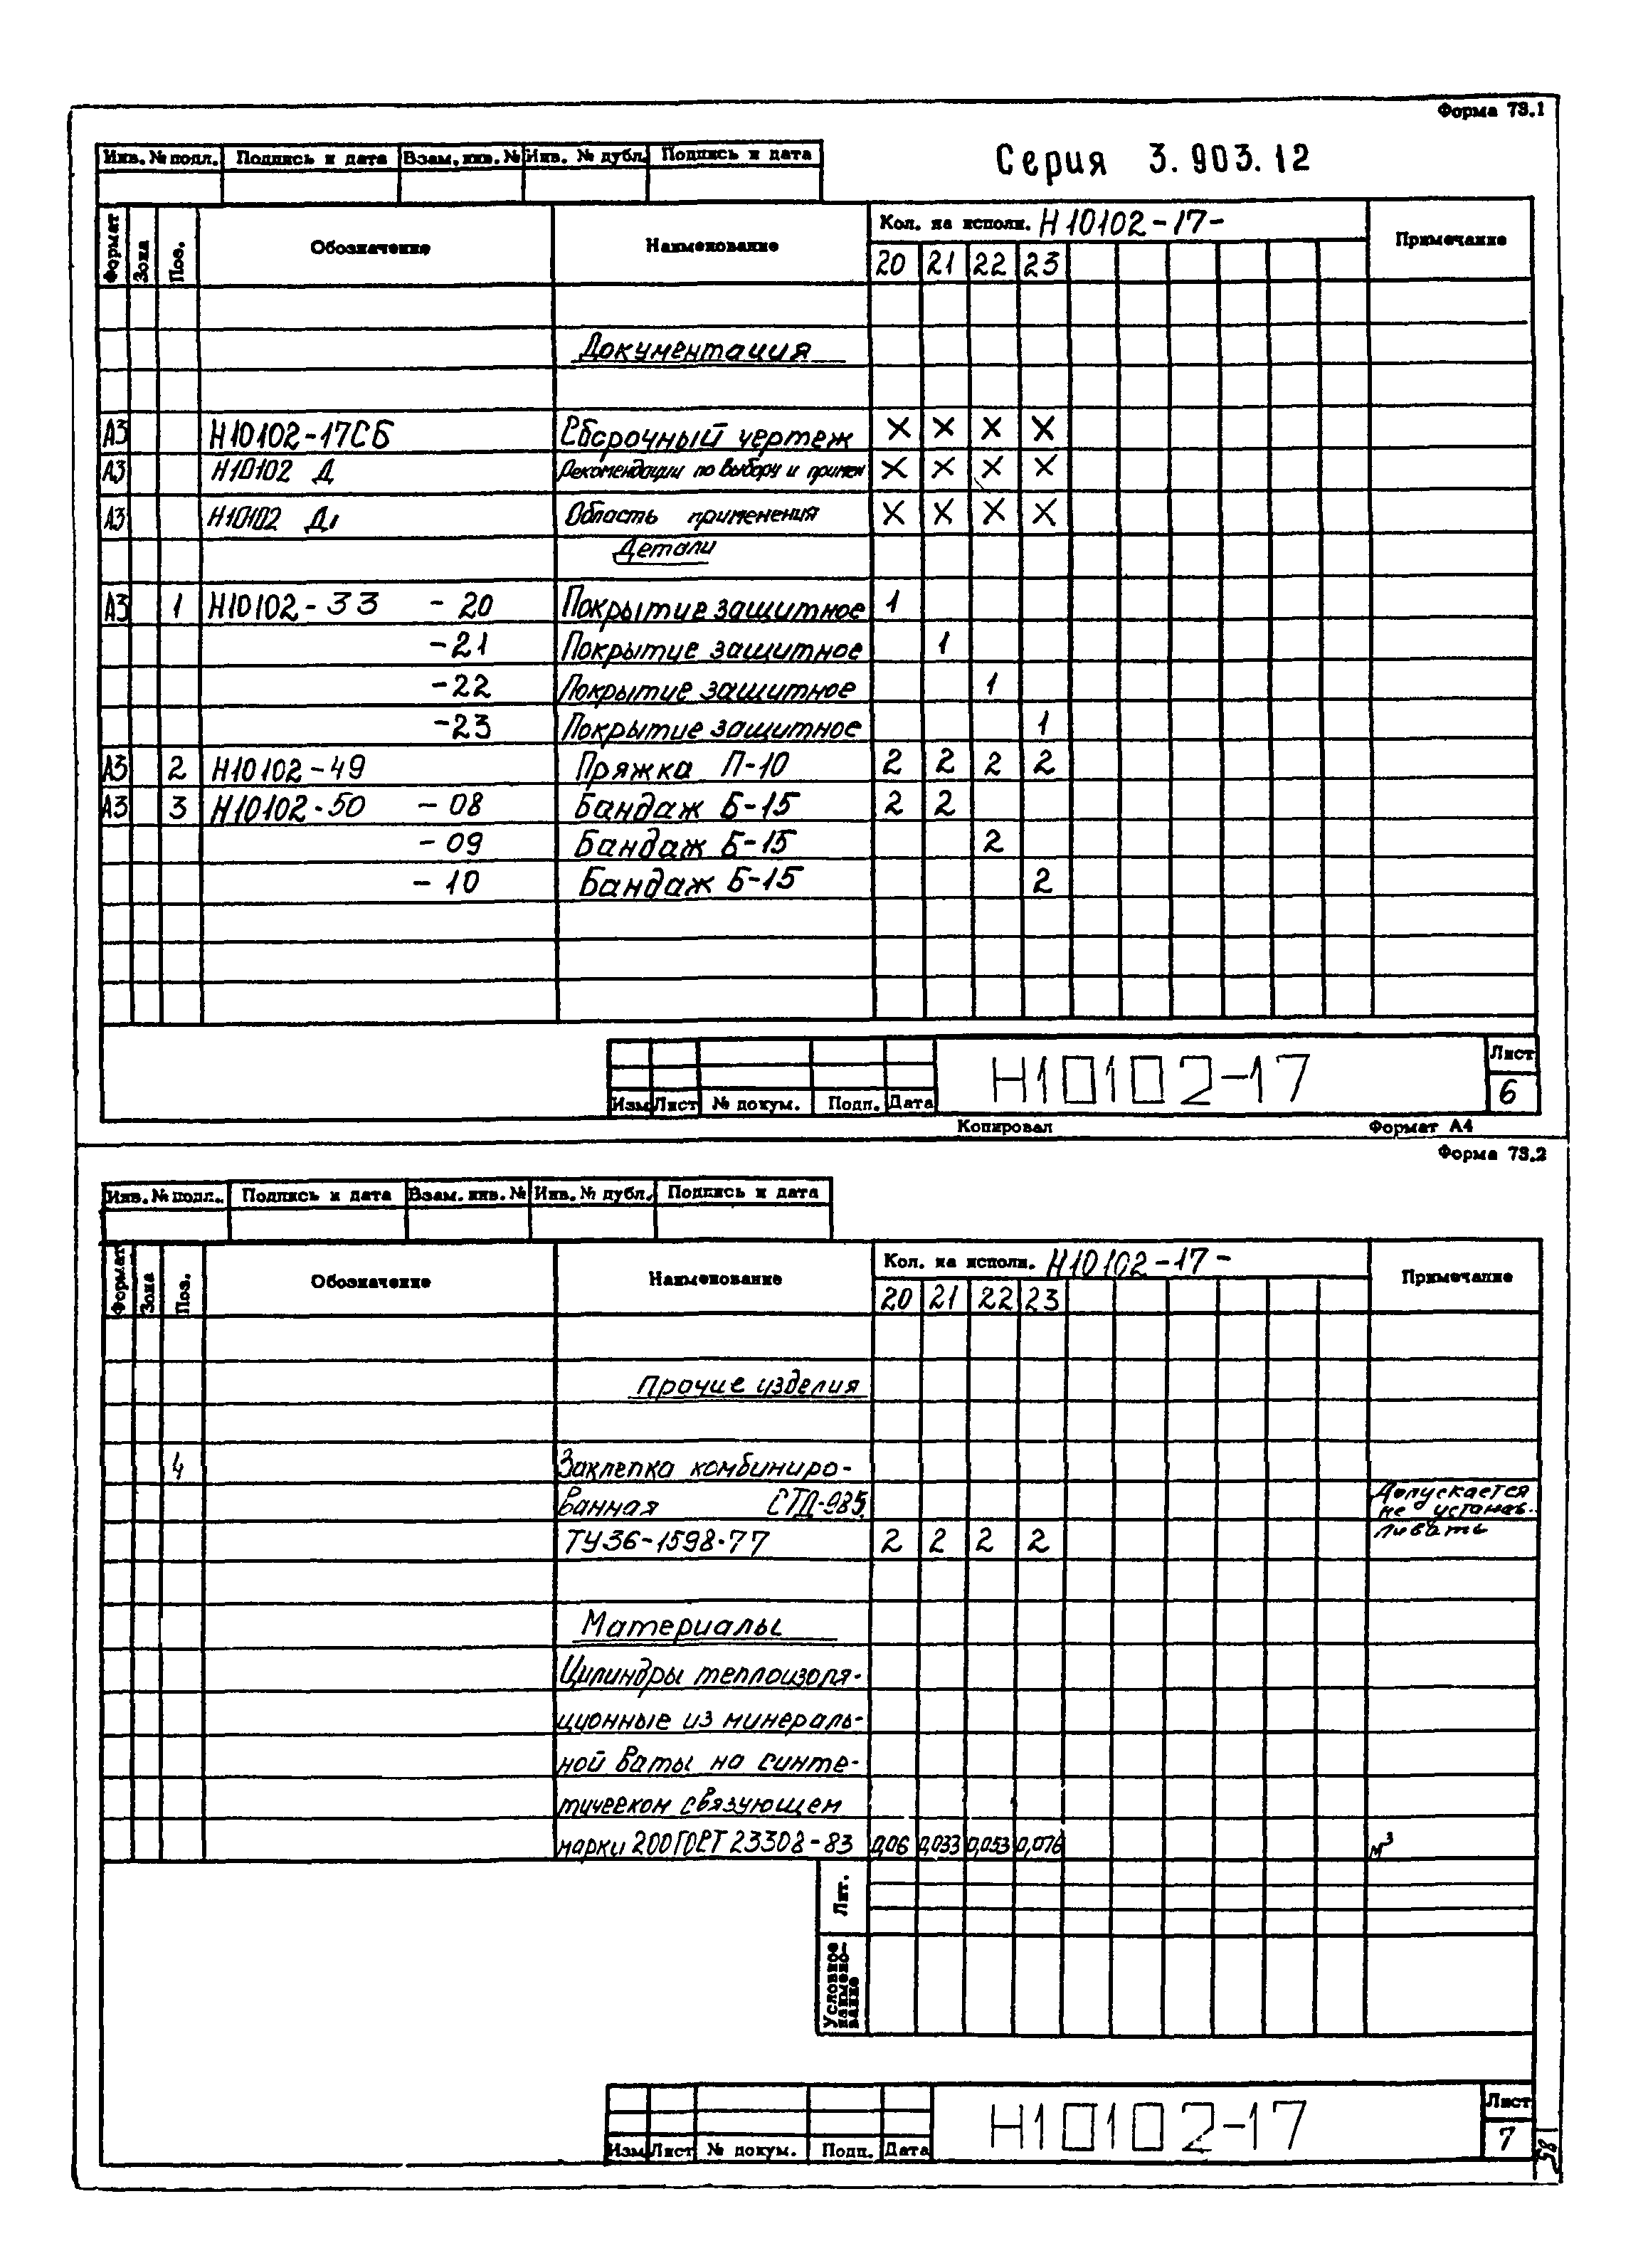 Форма 73.1
Инв. № подл. Подпись и дата Взам. инв. № Инв. № дубл. Подпись и дата
Серия 3.903.12
Формат Зона Поз. Обозначение Наименование Кол. на исполн. Н10102-17- Примечание
20 21 22 23
Документация
А3 Н10102-17СБ Сборочный чертеж × × × ×
А3 Н10102 Д Рекомендации по выбору и примен × × × ×
А3 Н10102 Д1 Область применения × × × ×
Детали
А3 1 Н10102-33 -20 Покрытие защитное 1
-21 Покрытие защитное 1
-22 Покрытие защитное 1
-23 Покрытие защитное 1
А3 2 Н10102-49 Пряжка П-10 2 2 2 2
А3 3 Н10102-50 -08 Бандаж Б-15 2 2
-09 Бандаж Б-15 2
-10 Бандаж Б-15 2
Н10102-17 Лист
6
Изм Лист № докум. Подп. Дата
Копировал Формат А4
Форма 73.2
Инв. № подл. Подпись и дата Взам. инв. № Инв. № дубл. Подпись и дата
Формат Зона Поз. Обозначение Наименование Кол. на исполн. Н10102-17- Примечание
20 21 22 23
Прочие изделия
4 Заклепка комбиниро-
ванная СТД-985. Допускается не устанав-
ТУ36-1598-77 2 2 2 2 ливать
Материалы
Цилиндры теплоизоля-
ционные из минераль-
ной ваты на синте-
тическом связующем
марки 200 ГОСТ 23308-83 0,06 0,033 0,053 0,076 м³
Лит.
Условное наимено-вание
Н10102-17 Лист
7
Изм Лист № докум. Подп. Дата